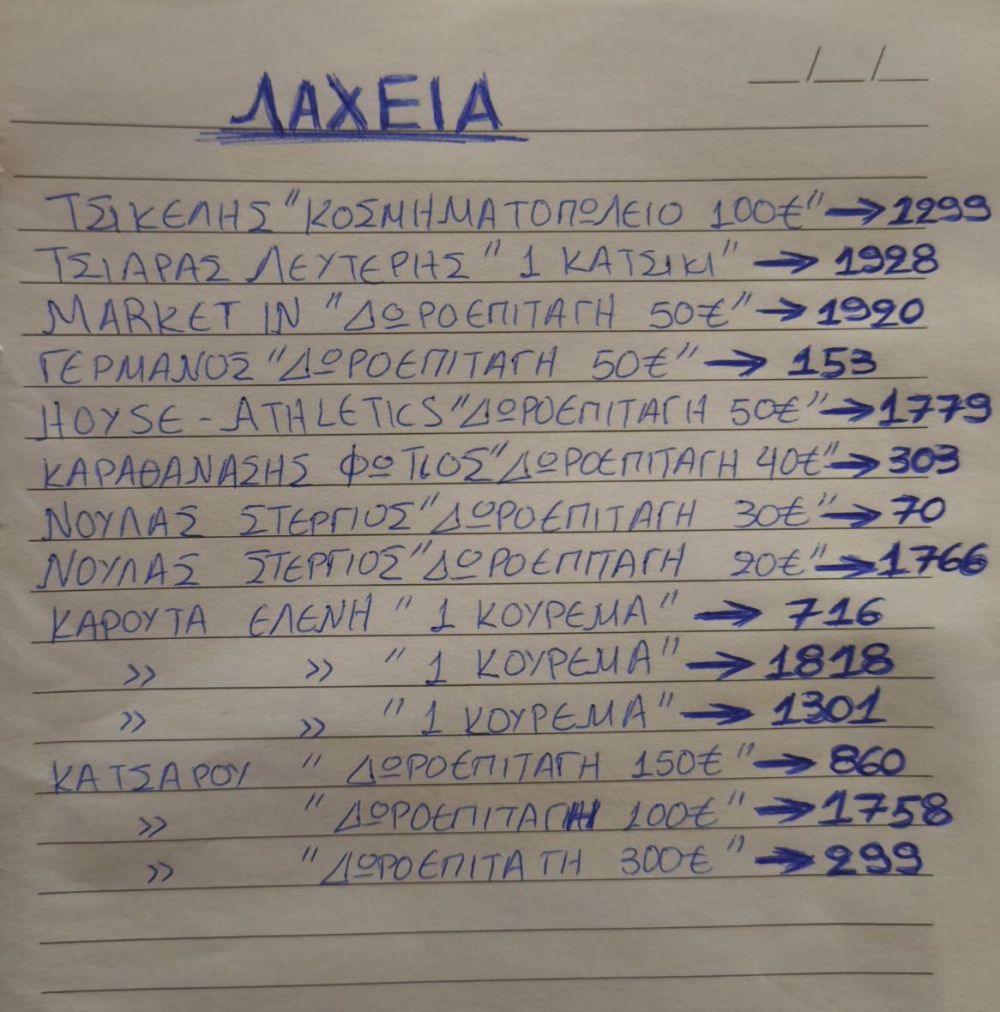 __/__/__
ΛΑΧΕΙΑ
ΤΣΙΚΕΛΗΣ "ΚΟΣΜΗΜΑΤΟΠΩΛΕΙΟ 100€" → 1299
ΤΣΙΑΡΑΣ ΛΕΥΤΕΡΗΣ " 1 ΚΑΤΣΙΚΙ" → 1928
MARKET IN "ΔΩΡΟΕΠΙΤΑΓΗ 50€" → 1920
ΓΕΡΜΑΝΟΣ "ΔΩΡΟΕΠΙΤΑΓΗ 50€" → 153
HOYSE - ATHLETICS "ΔΩΡΟΕΠΙΤΑΓΗ 50€" → 1779
ΚΑΡΑΘΑΝΑΣΗΣ ΦΩΤΙΟΣ "ΔΩΡΟΕΠΙΤΑΓΗ 40€" → 303
ΝΟΥΛΑΣ ΣΤΕΡΓΙΟΣ "ΔΩΡΟΕΠΙΤΑΓΗ 30€" → 70
ΝΟΥΛΑΣ ΣΤΕΡΓΙΟΣ "ΔΩΡΟΕΠΙΤΑΓΗ 20€" → 1766
ΚΑΡΟΥΤΑ ΕΛΕΝΗ " 1 ΚΟΥΡΕΜΑ " → 716
» » " 1 ΚΟΥΡΕΜΑ" → 1818
» » " 1 ΚΟΥΡΕΜΑ" → 1301
ΚΑΤΣΑΡΟΥ " ΔΩΡΟΕΠΙΤΑΓΗ 150€ " → 860
» " ΔΩΡΟΕΠΙΤΑΓΗ 100€ " → 1758
» " ΔΩΡΟΕΠΙΤΑΤΗ 300€ " → 299